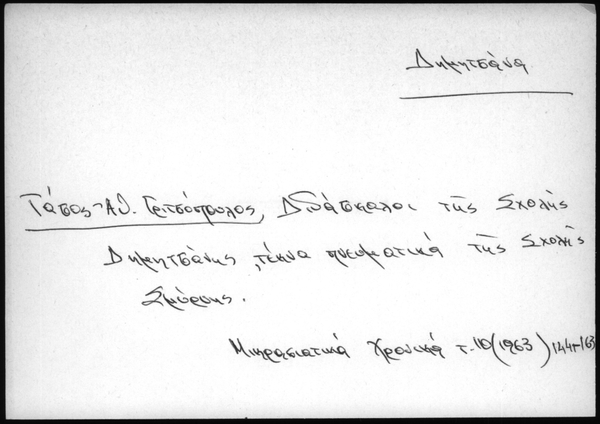 Δημητσάνα
Τάσος-Αθ. Γριτσόπουλος, Διδάσκαλοι τῆς Σχολῆς
Δημητσάνης, τέκνα πνευματικά τῆς Σχολῆς
Σμύρνης.
Μικρασιατικά Χρονικά τ. 10 (1963) 144-163